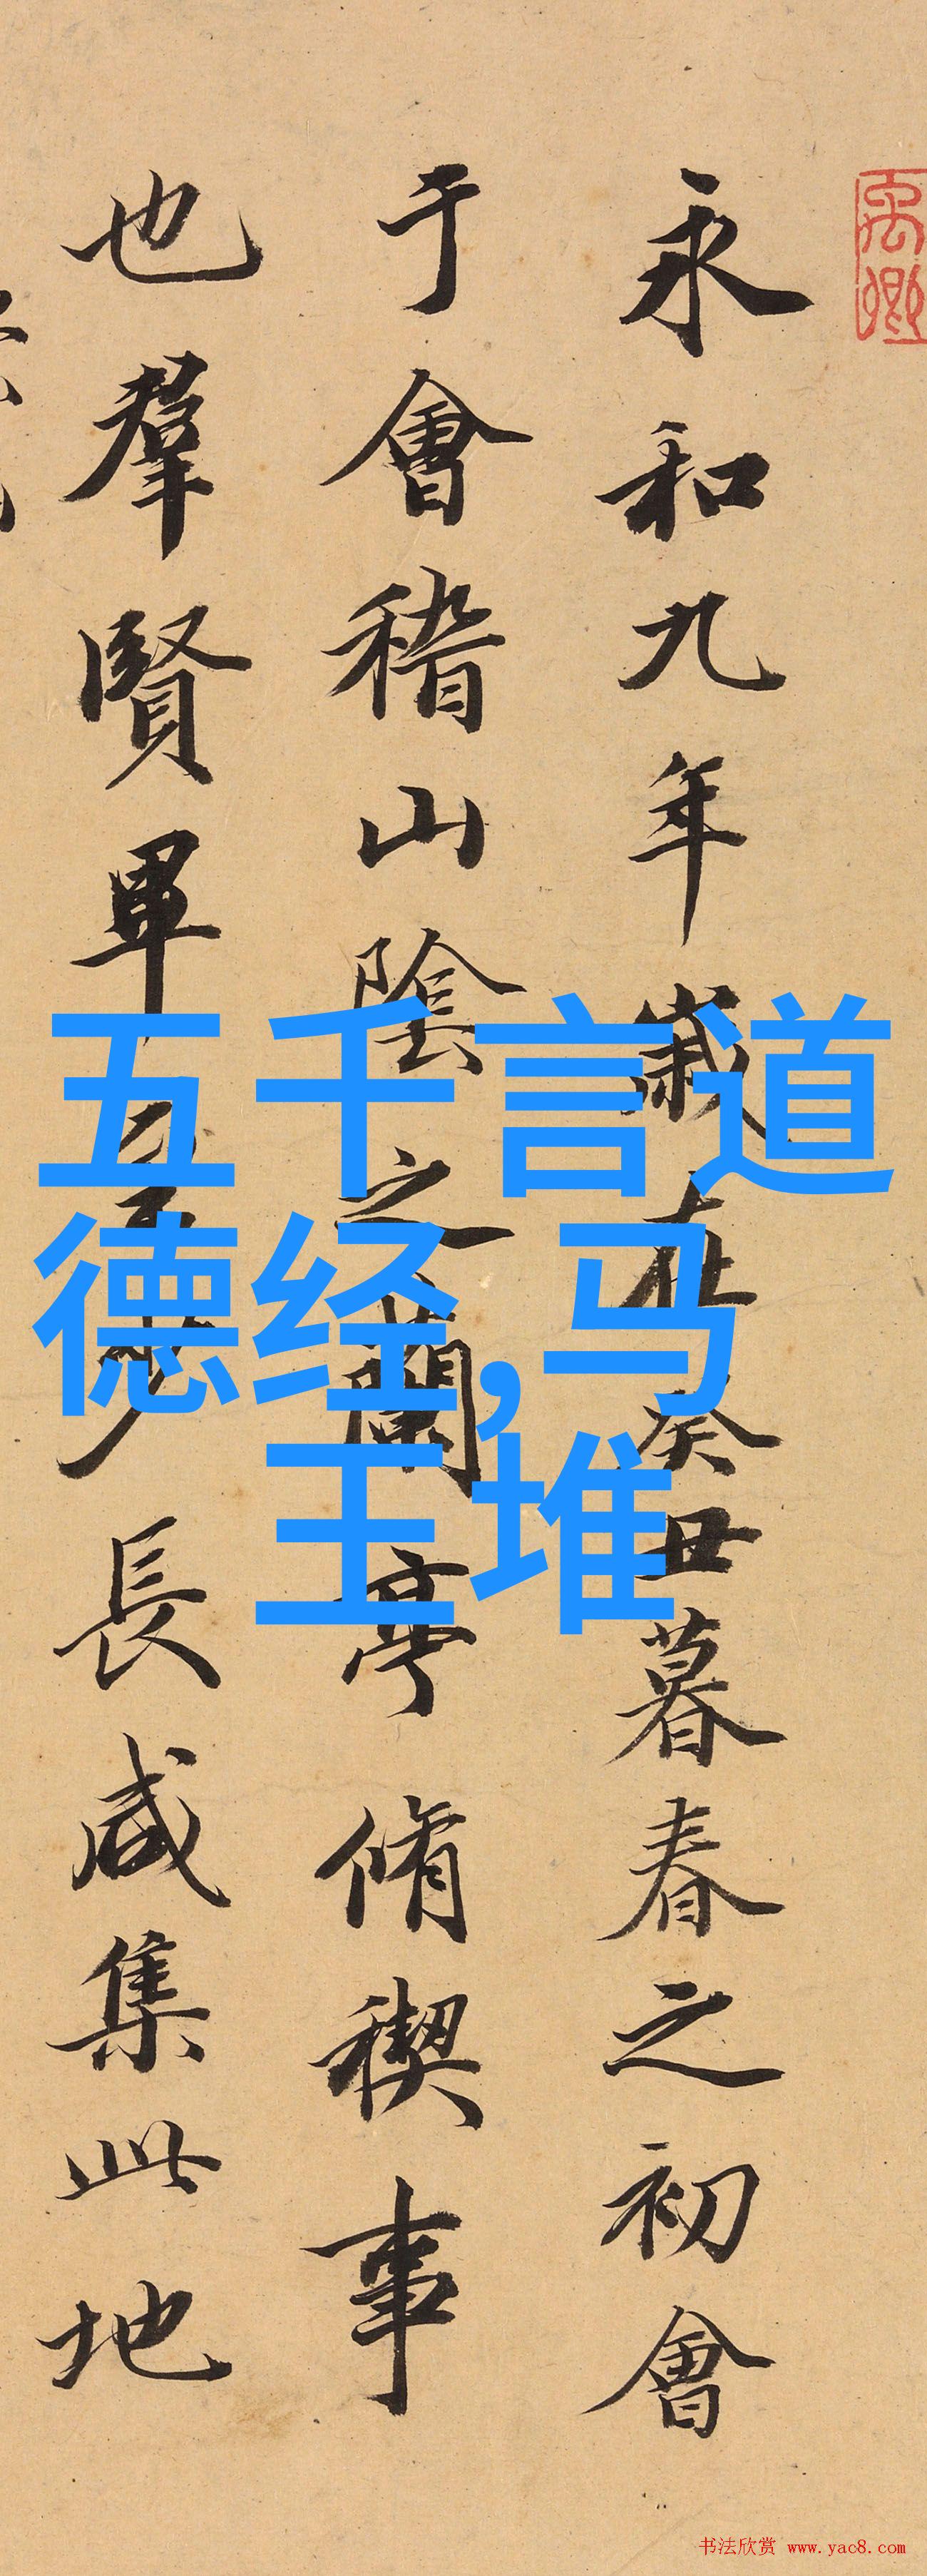 永和九年歲在癸丑暮春之初會
于會稽山陰之蘭亭脩稧事
也羣賢畢至少長咸集此地
五千言道
德经,马
王堆
书法欣赏 www.yac8.com